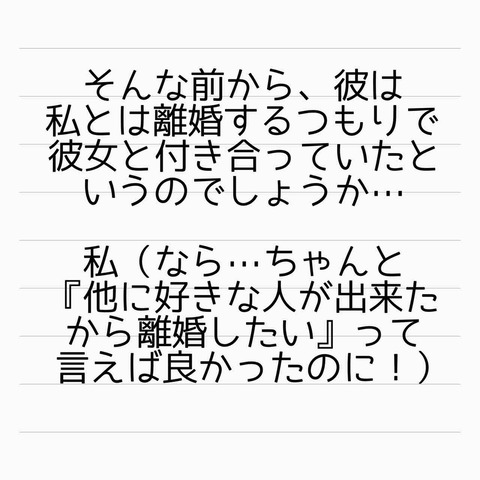 そんな前から、彼は
私とは離婚するつもりで
彼女と付き合っていたと
いうのでしょうか…
私（なら…ちゃんと
『他に好きな人が出来た
から離婚したい』って
言えば良かったのに！）